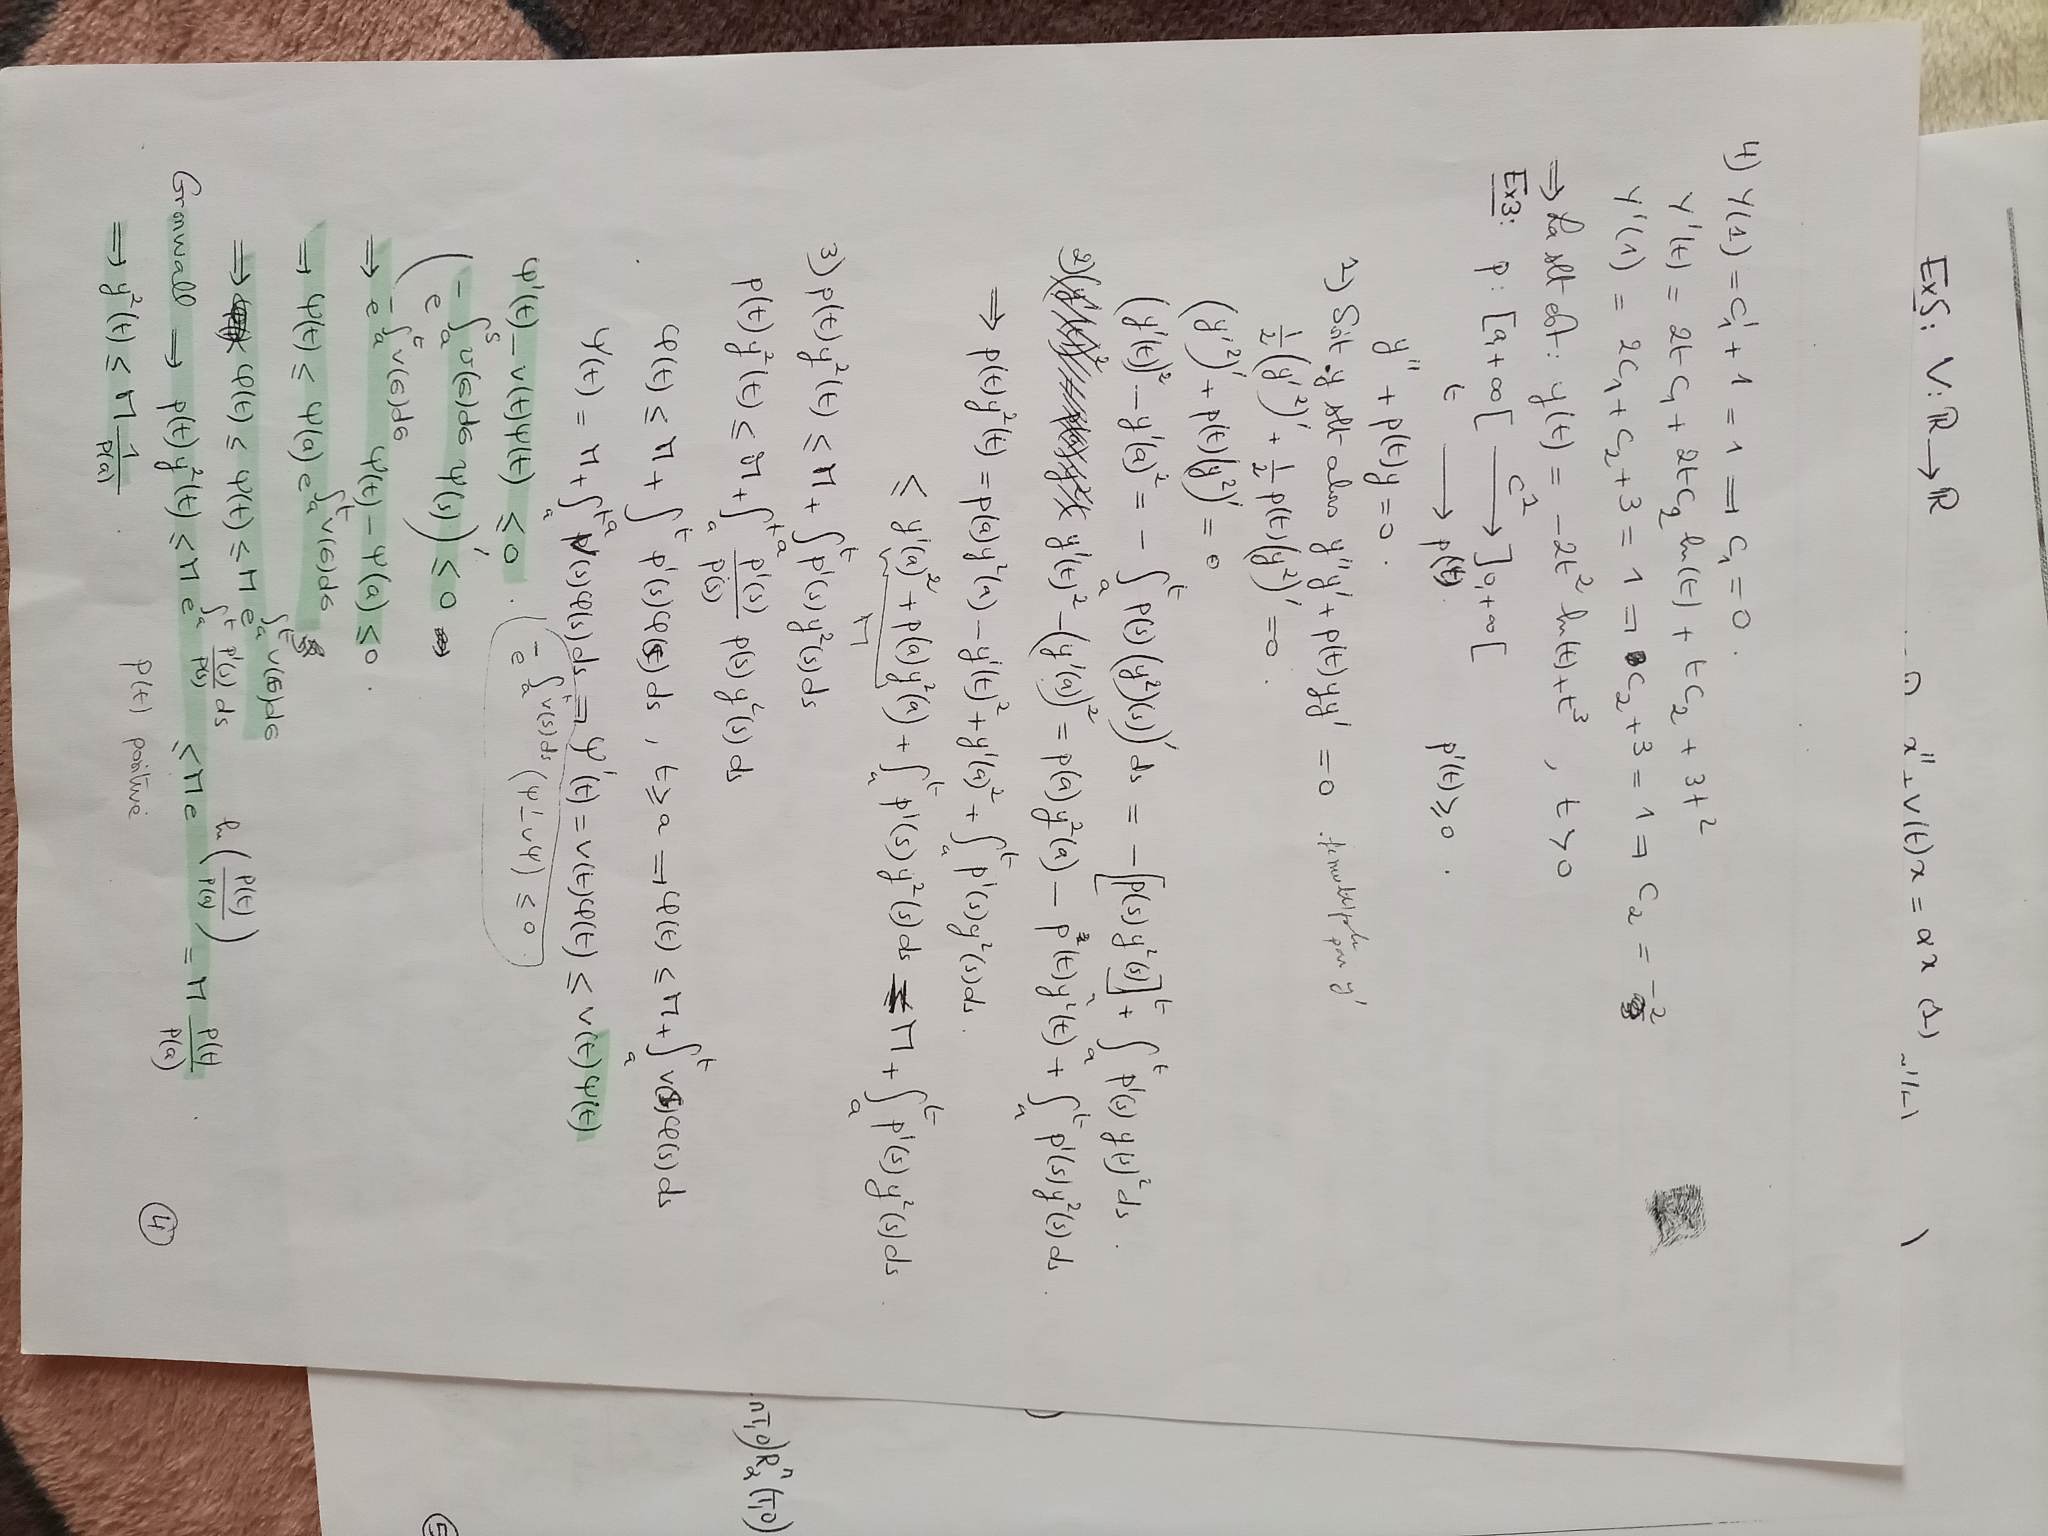 Ex5: V: ℝ → ℝ
x'' + V(t)x = αx (1)
4) y(1) = C₁ + 1 = 1 ⇒ C₁ = 0.
y'(t) = 2t C₁ + 2t C₂ ln(t) + t C₂ + 3t²
y'(1) = 2C₁ + C₂ + 3 = 1 ⇒ C₂ + 3 = 1 ⇒ C₂ = -2
⇒ La slt est: y(t) = -2t² ln(t) + t³, t > 0
Ex3: p: [a, +∞[ →^{C²} ]0, +∞[
t → p(t). p'(t) ≥ 0.
y'' + p(t)y = 0.
1) Soit y slt alors y''y' + p(t)yy' = 0. par y'
½(y'²)' + ½p(t)(y²)' = 0.
(y'²)' + p(t)(y²)' = 0
(y'(t))² - y'(a)² = -∫ₐᵗ p(s)(y²(s))' ds = -[p(s)y²(s)]ₐᵗ + ∫ₐᵗ p'(s)y(s)² ds.
2) y'(t)² - (y'(a))² = p(a)y²(a) - p(t)y²(t) + ∫ₐᵗ p'(s)y²(s)ds.
⇒ p(t)y²(t) = p(a)y²(a) - y'(t)² + y'(a)² + ∫ₐᵗ p'(s)y²(s)ds.
≤ y'(a)² + p(a)y²(a) + ∫ₐᵗ p'(s)y²(s)ds ≤ M + ∫ₐᵗ p'(s)y²(s)ds
M
3) p(t)y²(t) ≤ M + ∫ₐᵗ p'(s)y²(s)ds
p(t)y²(t) ≤ M + ∫ₐᵗ p'(s)/p(s) p(s)y²(s)ds
φ(t) ≤ M + ∫ₐᵗ p'(s)φ(s)ds, t ≥ a ⇒ φ(t) ≤ M + ∫ₐᵗ v(s)φ(s)ds
ψ(t) = M + ∫ₐᵗ v(s)φ(s)ds ⇒ ψ'(t) = v(t)φ(t) ≤ v(t)ψ(t)
ψ'(t) - v(t)ψ(t) ≤ 0. (e^{-∫ₐᵗ v(s)ds}(ψ' - vψ) ≤ 0.
(e^{-∫ₐˢ v(σ)dσ} ψ(s))' ≤ 0
⇒ e^{-∫ₐᵗ v(σ)dσ} ψ(t) - ψ(a) ≤ 0.
⇒ ψ(t) ≤ ψ(a) e^{∫ₐᵗ v(σ)dσ}
⇒ φ(t) ≤ ψ(t) ≤ M e^{∫ₐᵗ v(σ)dσ}
Gronwall ⇒ p(t)y²(t) ≤ M e^{∫ₐᵗ p'(s)/p(s) ds} ≤ M e^{ln(p(t)/p(a))} = M p(t)/p(a).
⇒ y²(t) ≤ M 1/p(a). p(t) positive
④
nT,0)R₂ⁿ(T,0)
⑤